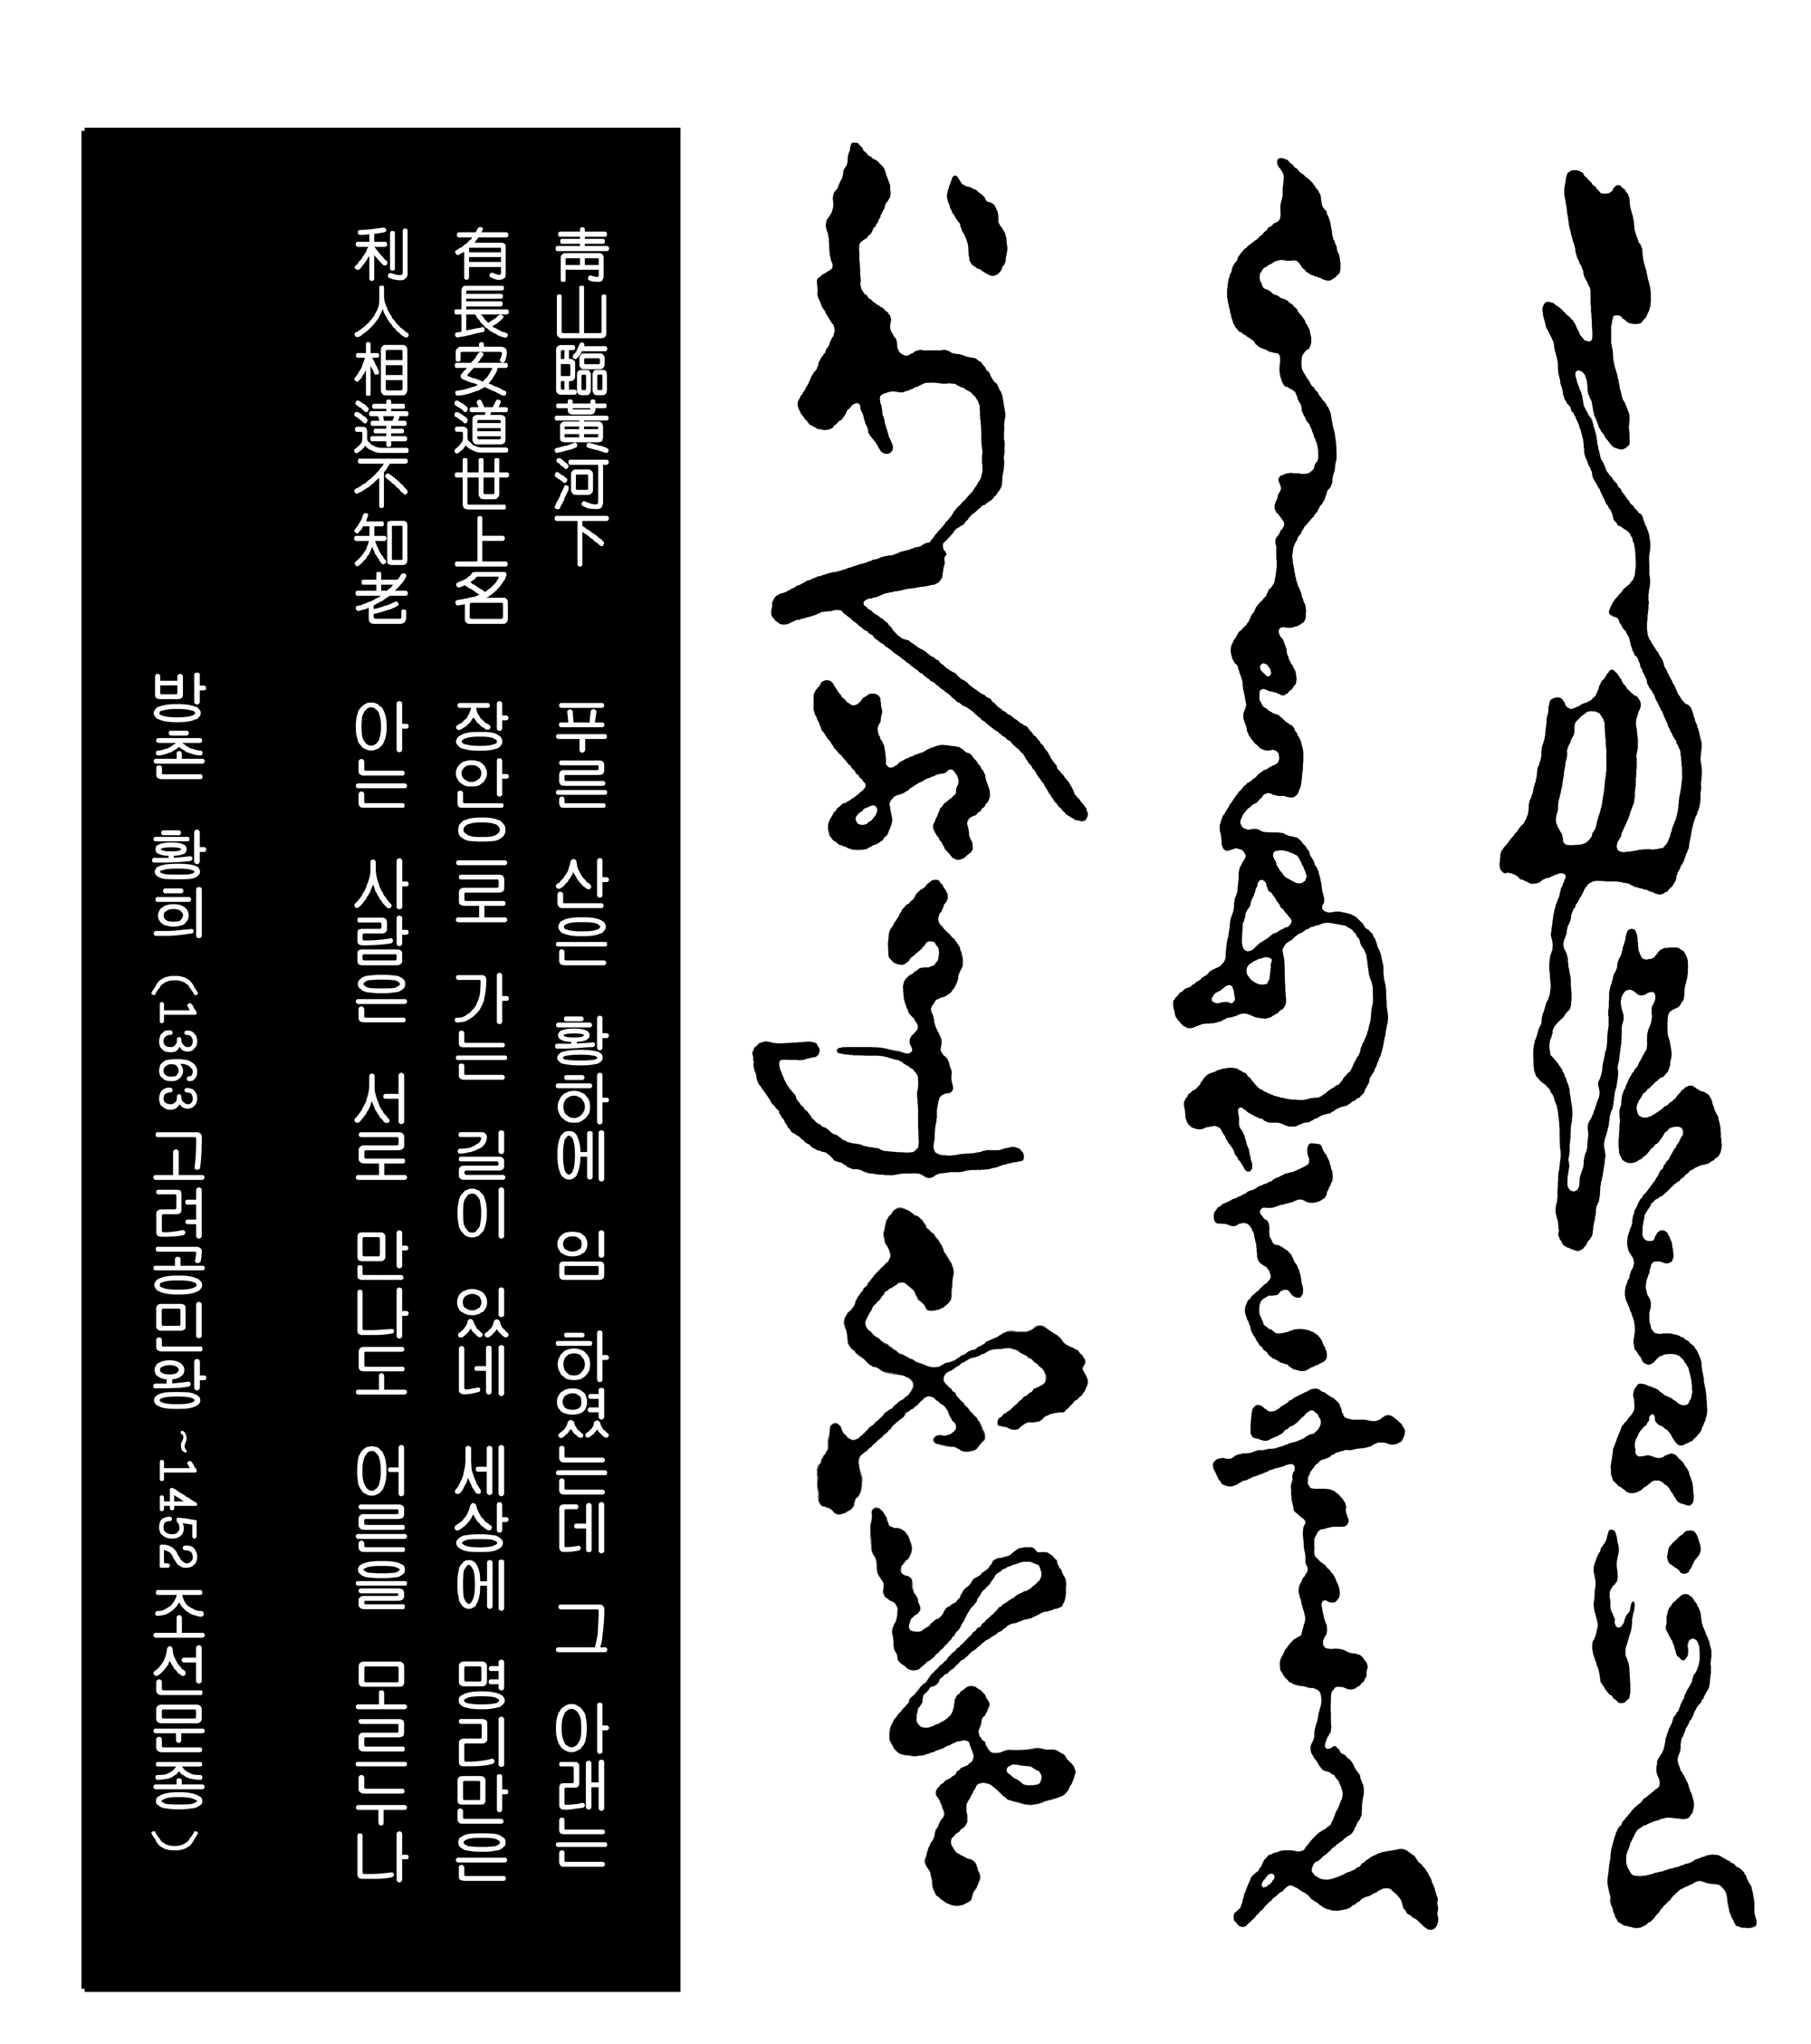 靑山臨黃河下
有長安道世上名
利人相逢不知老
靑山臨黃河下 푸른 산은 황하에 임 하였는데 그 아래는
有長安道世上名 장안으로 가는 길이 있네 세상에 명리만은
利人相達不知老 아는 사람은 서로 만나도 어른을 모르누나
방촌 황희 (1363 고려공민왕 ~1452 조선문종)